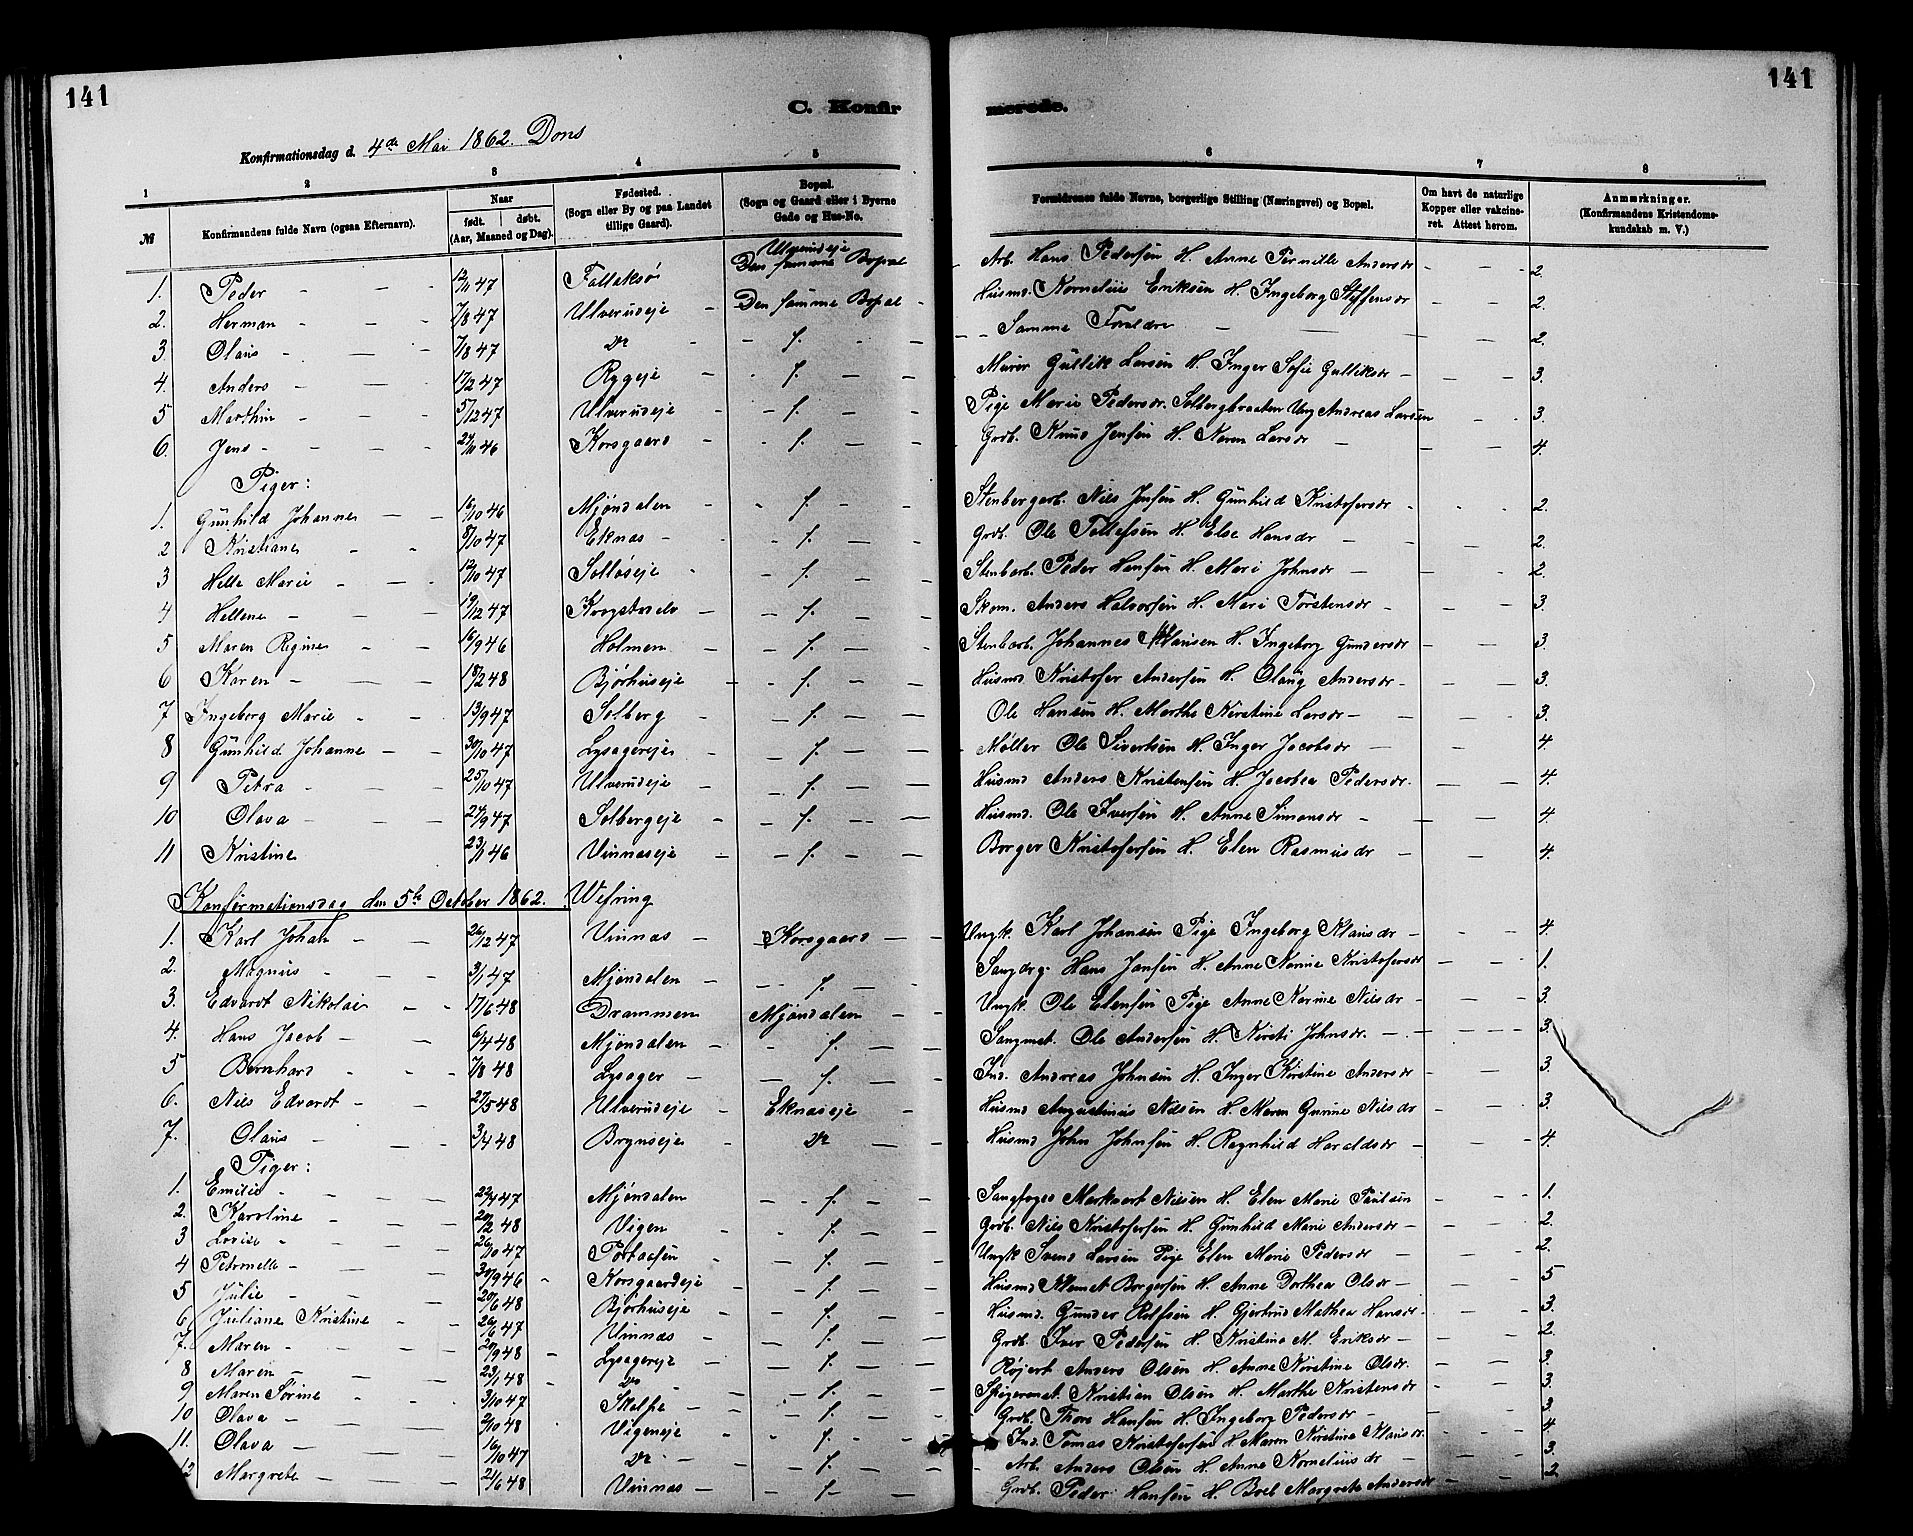 141
C. Konfir merede.
141
Konfirmationsdag d. 4de Mai 1862. Dons
1 2 3 4 5 6 7 8
№ Konfirmandens fulde Navn (ogsaa Efternavn). Naar født. døbt. (Aar, Maaned og Dag). Fødested. (Sogn eller By og paa Landet tillige Gaard). Bopæl. (Sogn og Gaard eller i Byerne Gade og Hus-No. Forældrenes fulde Navne, borgerlige Stilling (Næringsvei) og Bopæl. Om havt de naturlige Kopper eller vakcineret. Attest herom. Anmærkninger. (Konfirmandens Kristendomskundskab m. V.)
Ulverudeje
1. Peder 12/11 47 Den samme Bopæl Arb. Hans Pedersen H. Anne Pernille Andersdr 2.
2. Herman 7/8 47 Ulverudeje Den samme Bopæl Husmd. Kornelius Eriksen H. Ingeborg Steffensdr 2.
3. Olaus 7/8 47 do f. Samme Forældre 2.
4. Anders 17/2 47 Rygeje f. Murer Gullik Larsen H. Inger Sofie Gulliksdr 3.
5 Marthin 5/12 47 Ulverudeje f. Pige Marie Pedersdr. Solbergbraaten Ung. Andreas Larsen 3.
6. Jens 27/10 46 Korsgaard f. Grdb. Knud Jensen H. Maren Larsdr 4.
Piger:
1. Gunhild Johanne 16/10 46 Mjøndalen f. Stenbergarb. Niels Jensen H. Gunhild Kristofersdr 2.
2 Kristiane 8/10 47 Eknæs f. Grdb. Ole Tollefsen H. Else Hansdr 2.
3 Helle Marie 12/10 47 f. Stenbarb. Peder Hansen H. Mari Johnsdr 2.
4 Hellene 19/12 47 f. Skom. Anders Halvorsen H. Mari Torstensdr 3.
5 Maren Regine 16/9 46 Holmen f. Stenbarb. Johannes Hansen H. Ingeborg Gundersdr 3.
6 Karen 18/2 48 Bjørhuseje f. Husmd Kristofer Andersen H. Olaug Andersdr 3.
7 Ingeborg Marie 13/9 47 Solberg f. Ole Hansen H. Marthe Kirstine Larsdr 3.
8 Gunhild Johanne 30/10 47 Lysagereje f. Møller Ole Sivertsen H. Inger Jacobsdr 4.
9 Petra 25/10 47 Ulverudeje f. Husmd Anders Kristensen H. Jacobea Pedersdr. 4.
10 Olava 24/9 47 Solbergeje f. Husmd. Ole Iversen H. Anne Simonsdr 4.
11 Kristine 23/11 46 Vinnæseje f. Borger Kristofersen H. Elen Rasmusdr 4.
Konfirmationsdag den 5te October 1862. Wefring
1. Karl Johan 26/12 47 Vinnæs Korsgaard Ungk. Karl Johansen Pige Ingeborg Klausdr 4.
2. Magnus 3/1 47 Mjøndalen f. Hans Jansen H. Anne Kristofersdr 1.
3. Edvardt Nikolai 17/6 48 Drammen Mjøndalen Ungk. Ole Elensen Pige Anne Karine Nilsdr 3.
4. Hans Jacob 6/4 48 Mjøndalen f. Sangmst. Ole Andersen H. Kirsti Johnsdr. 3.
5 Bernhard 7/8 48 Lysager f. Ind. Andreas Johnsen H. Inger Kirstine Andersdr 3.
6. Nils Edvardt 27/5 48 Ulverudeje Eknæseje Husmd Augustinus Nilsen H. Maren Gurine Nilsdr 3.
7. Olaus 3/4 48 Brynseje do Husmd John Johnsen H. Ragnhild Haraldsdr 4.
Piger:
1. Emilie 29/4 47 Mjøndalen f. Sangfoged Markvert Nilsen H. Elen Marie Paulsen 1.
2. Karoline 20/2 48 Vigen f. Grdb. Nils Kristofersen H. Gunhild Marie Andersdr 2.
3 Lovise 26/10 47 f. Ungk Svend Larsen Pige Elen Marie Pedersdr 2.
4 Petronelle 30/9 46 Korsgaardeje f. Husmd Borgersen H. Anne Dorthea Olsdr 5
5 Julie 20/6 48 Bjørhuseje f. Husmd. Gunder Rolfsen H. Gjertrud Mathea Hansdr 3.
6 Juliane Kristine 26/6 47 Vinnæs f. Grdb. Iver Pedersen H. Kristine M. Eriksdr 2.
7. Maren 20/9 48 Lysagereje f. Anders Olsen H. Anne Kirstine Olsdr. 3.
8 Maren 23/1 48 do f. Kristian Olsen H. Marthe Kristensdr 3.
9 Maren Sørine 3/10 47 f. Grdb. Thore Hansen H. Ingeborg Pedersdr 3.
10 Olava 2/10 48 Vigeneje f. Ind. Tomas Kristofersen H. Maren Kirstine Klausdr. 4.
11. Olava 16/10 47 do f. Arb. Anders Olsen H. Anne Korneliusdr 3.
12 Margrete 21/6 48 Vinnæs f. Grdb. Peder Hansen H. Boel Margrete Andersdr 2.